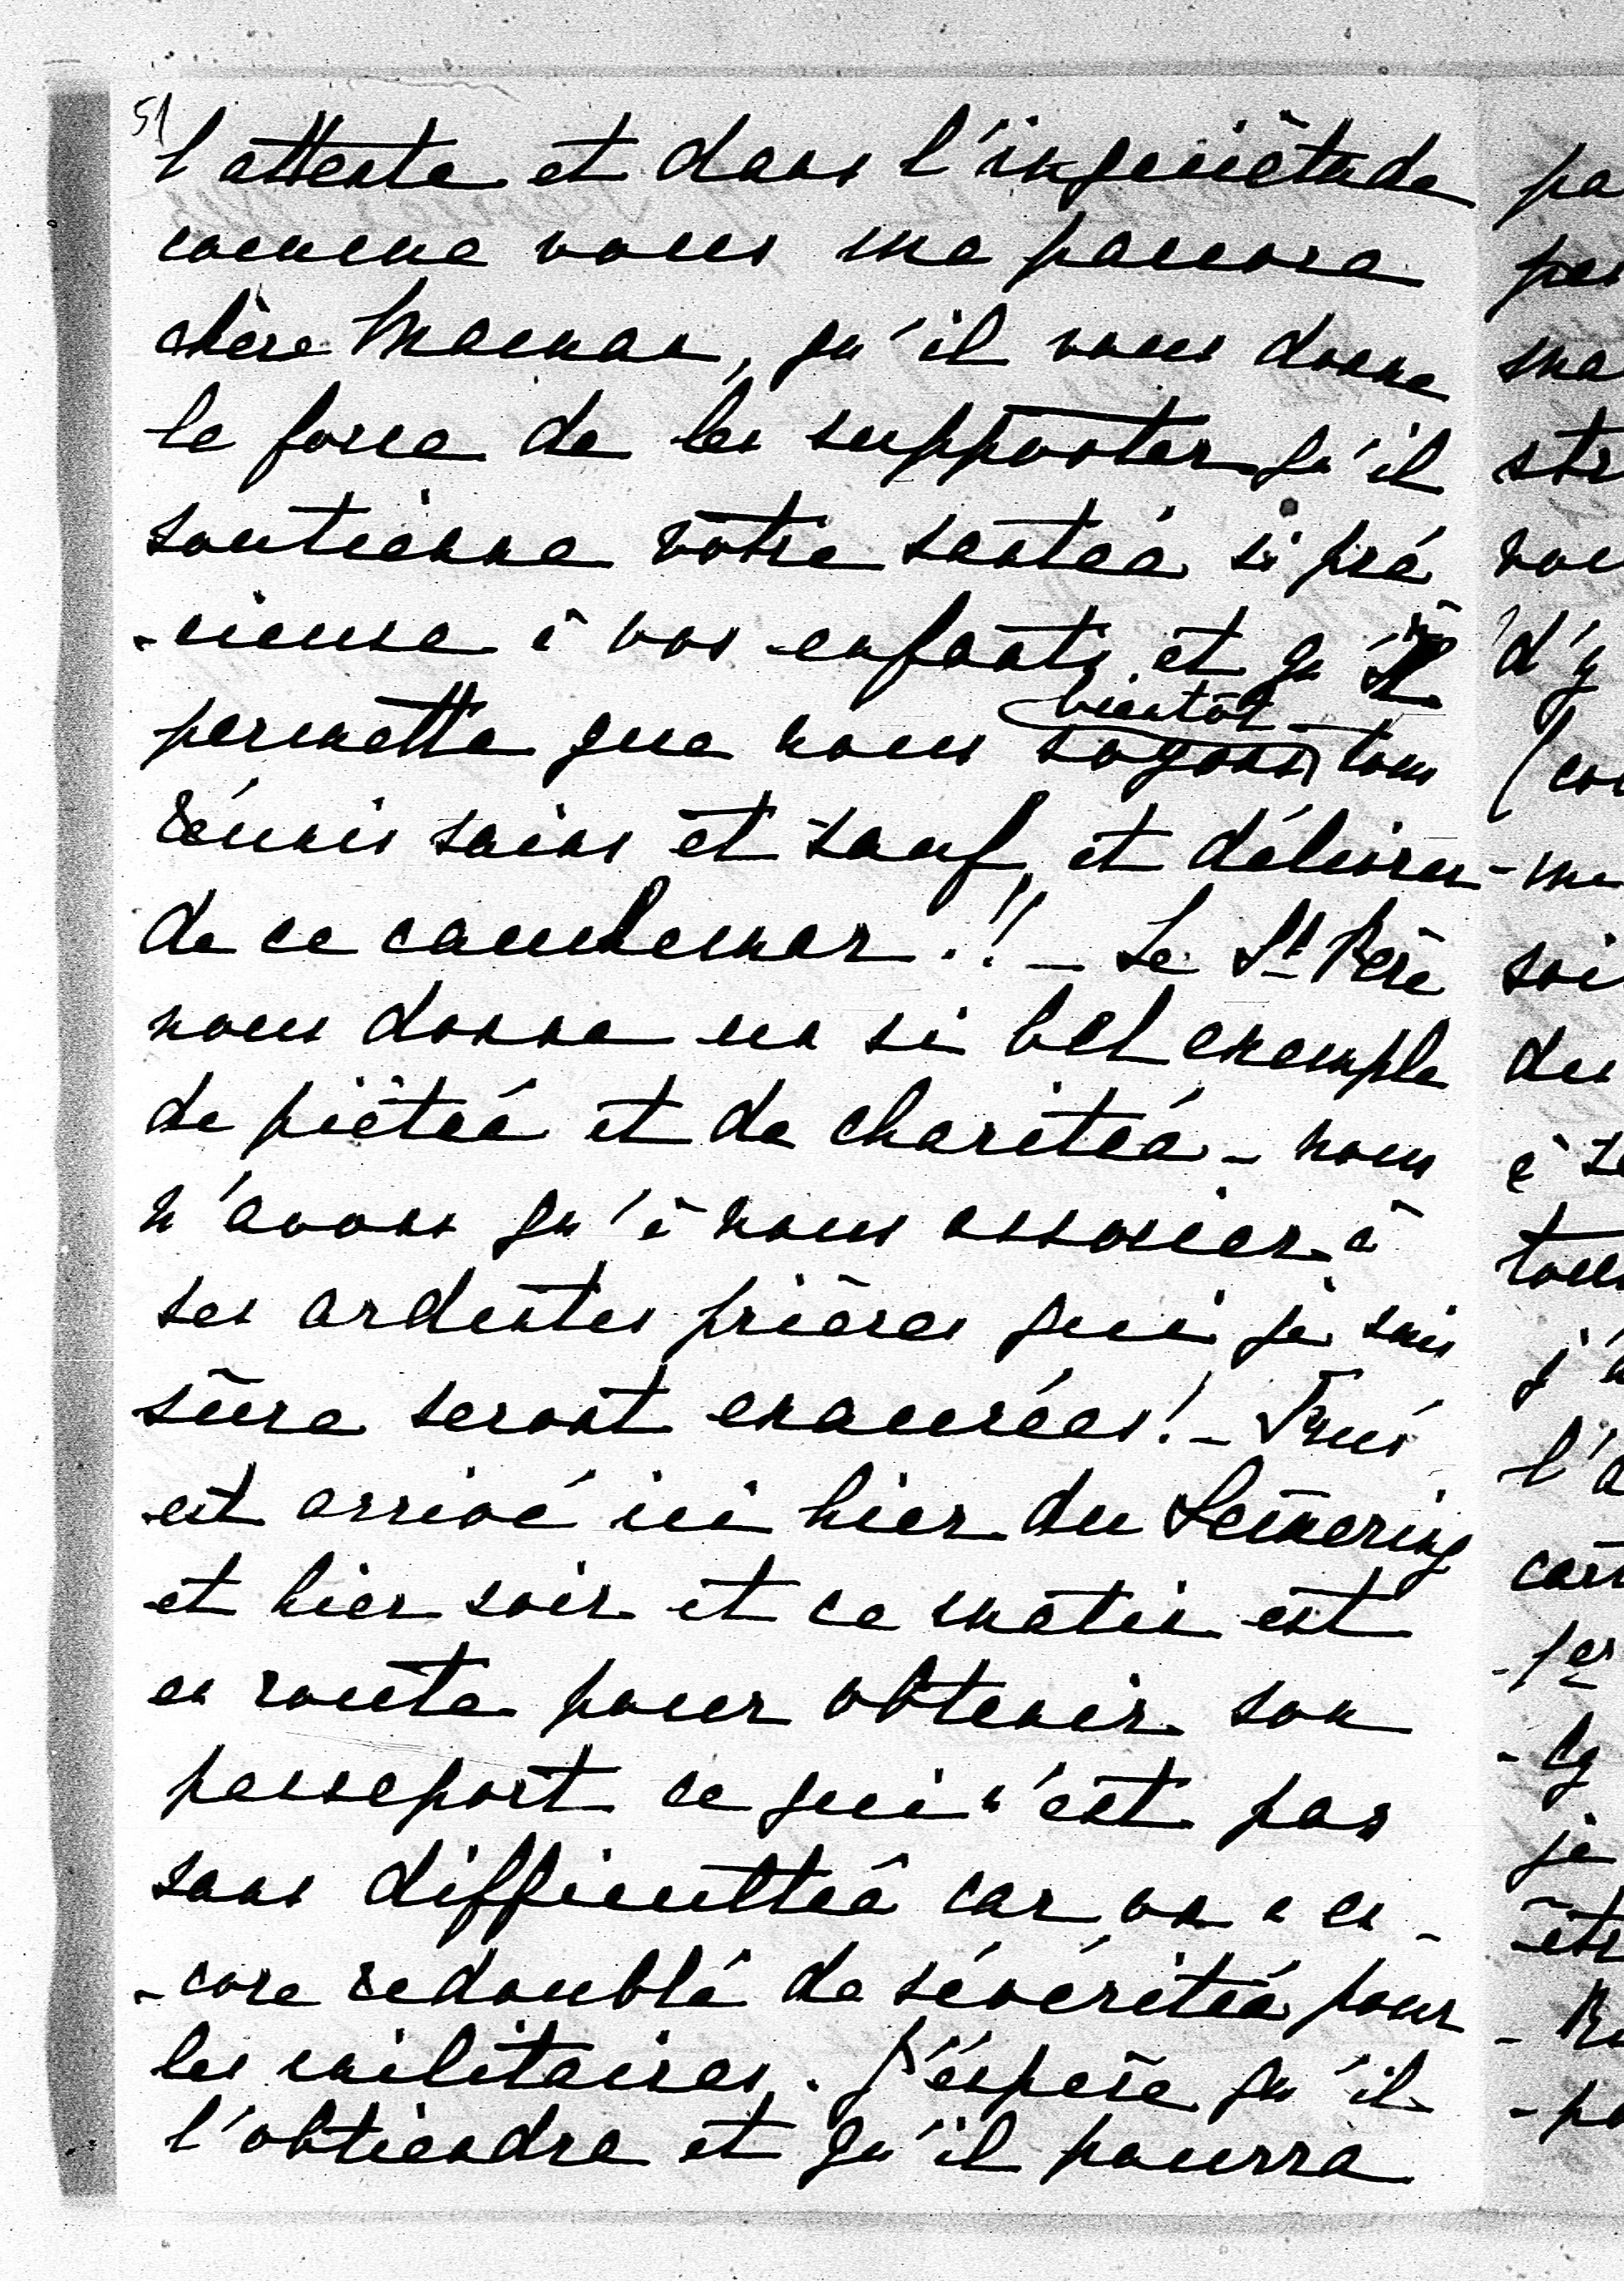 51
l'attente et dans l'inquiètude
comme vous ma pauvre
chère Maman, qu'il vous donne
la force de les supporter qu'il
soutienne vôtre santeé si pré
-cieuse à vos enfants et qu'il
permette que nous soyons bientôt tous
réunis sains et sauf, et délivrer
de ce cauchemar.!! - Le St Père
nous donne un si bel exemple
de pièteé et de chariteé - nous
n'avons qu'à nous associer à
ses ardentes prières qui je suis
sûre seront exaucées! -
est arrivé ici hier du Semering
et hier soir et ce matin est
en route pour obtenir son
passeport ce qui n'est pas
sans difficulteé car on a en-
-core redoublé de sévériteé pour
les militaires. J'éspère qu'il
l'obtiendra et qu'il pourra
pa
pas
ma
str
vou
d'y
(co
-me
soi
des
à
tou
j'
l'
cart
-per
je
êtr